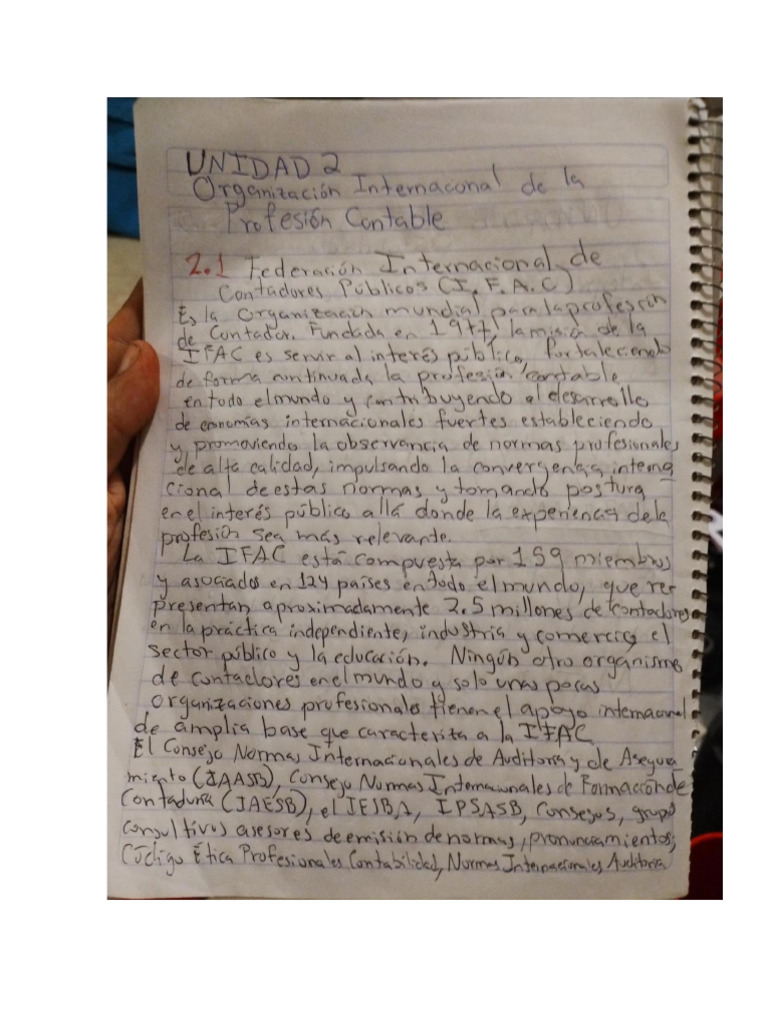 UNIDAD 2
Organización Internaconal de la
Profesión Contable
2.1 Federación Internacional de
Contadores Públicos (I.F.A.C)
Es la organización mundial para la profesión
de Contador. Fundada en 1977, la misión de la
IFAC es servir al interés público, fortaleciendo
de forma continuada la profesión contable
en todo el mundo y contribuyendo al desarrollo
de economías internacionales fuertes estableciendo
y promoviendo la observancia de normas profesionales
de alta calidad, impulsando la convergencia interna
cional de estas normas y tomando postura
en el interés público allá donde la experiencia de la
profesión sea más relevante.
La IFAC está compuesta por 159 miembros
y asociados en 124 países en todo el mundo, que re-
presentan aproximadamente 2.5 millones de contadores
en la práctica independiente, industria y comercio, el
sector público y la educación. Ningún otro organismo
de contadores en el mundo y solo unas pocas
organizaciones profesionales tienen el apoyo internacional
de amplia base que caracteriza a la IFAC
El Consejo Normas Internacionales de Auditora y de Asegura
miento (IAASB), Consejo Normas Internacionales de Formación de
Contaduria (IAESB), el IESBA, IPSASB, Consejos, grupo
consultivos asesores de emisión de normas, pronunciamientos;
Código Ética Profesionales Contabilidad, Normas Internacionales Auditoria